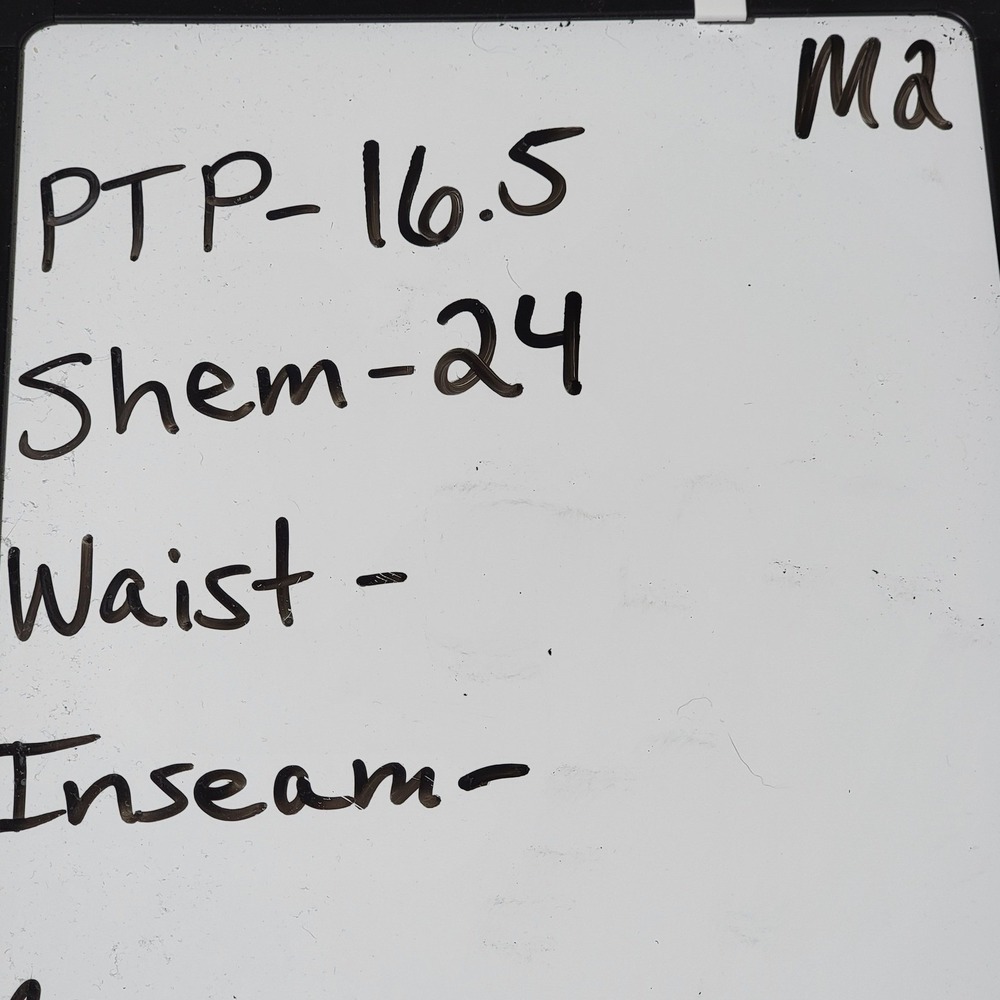 M2
PTP- 16.5
Shem-24
Waist -
Inseam-